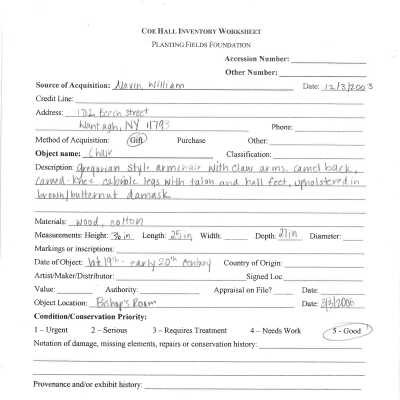 COE HALL INVENTORY WORKSHEET
PLANTING FIELDS FOUNDATION
Accession Number:
Other Number:
Source of Acquisition: Navin, William Date: 12/3/2003
Credit Line:
Address: 1712 Beech Street
Wantagh, NY 11793 Phone:
Method of Acquisition: Gift Purchase Other:
Object name: Chair Classification:
Description: gregorian style armchair with claw arms, camel back,
carved-knee cabriole legs with talon and ball feet, upholstered in
brown/butternut damask
Materials: wood, cotton
Measurements: Height: 36 in Length: 25 in Width: Depth: 21 in Diameter:
Markings or inscriptions:
Date of Object: late 19th - early 20th century Country of Origin:
Artist/Maker/Distributor: Signed Loc:
Value: Authority: Appraisal on File? Date:
Object Location: Bishop's Room Date: 3/3/2006
Condition/Conservation Priority:
1 – Urgent 2 – Serious 3 – Requires Treatment 4 – Needs Work 5 - Good
Notation of damage, missing elements, repairs or conservation history:
Provenance and/or exhibit history: